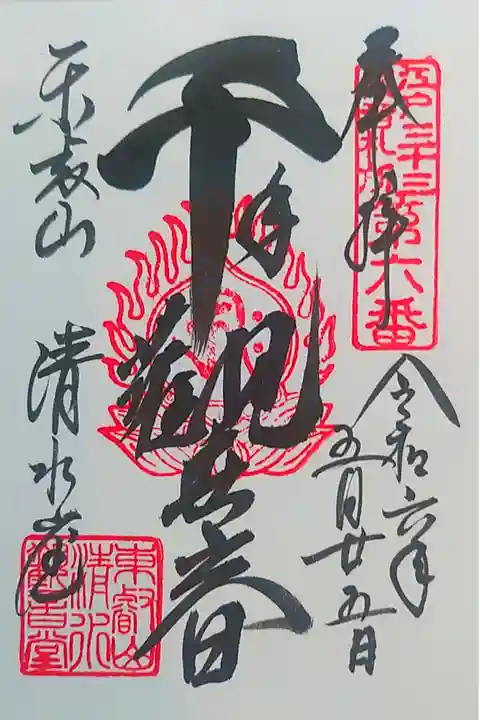 奉拝
三十三
第六番
令和六年
五月廿五日
千手觀世音
東叡山
清水堂
東叡山
清水
觀音堂